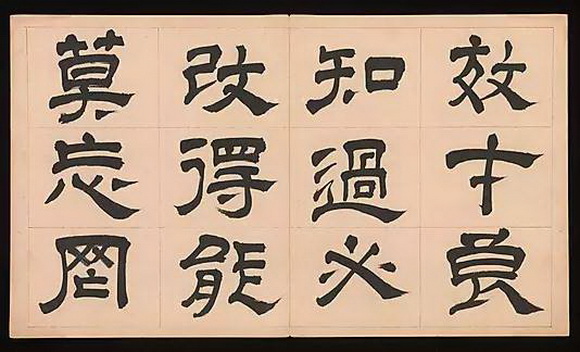 效才良
知過必
改得能
莫忘罔